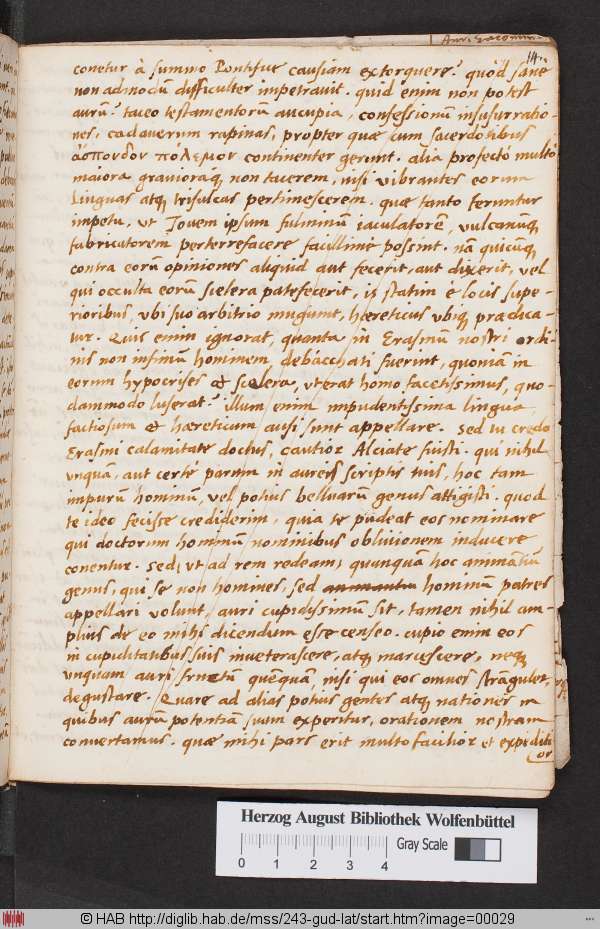 14.
conetur à summo Pontifice causam extorquere? quod sane
non admodū difficulter impetrauit. quid enim non potest
aurū? taceo testamentorū aucupia, confessionū insusurratio-
nes, cadauerum rapinas, propter quae cum sacerdotibus
ἄσπονδον πόλεμον continenter gerunt. alia profectò multò
maiora grauioraq; non tacerem, nisi vibrantes eorum
linguas atq; trisulcas pertimescerem. quae tanto feruntur
impetu, ut Jouem ipsum fulminū iaculatorē, vulcanūq;
fabricatorem perterrefacere facillime possint. nā quicūq;
contra eorū opiniones aliquid aut fecerit, aut dixerit, vel
qui occulta eorū scelera patefecerit, is statim è locis supe-
rioribus, vbi suo arbitrio mugiunt, haereticus vbiq; praedica-
tur. Quis enim ignorat, quanta in Erasmū nostri ordi-
nis non infimū hominem debacchati fuerint, quoniā in
eorum hypocrises et scelera, vt erat homo facetissimus, quo-
dammodo luserat? illum enim impudentissima lingua,
factiosum et haereticum ausi sunt appellare. sed tu credo
Erasmi calamitate doctus, cautior Alciate fuisti. qui nihil
vnquā, aut certè parum in aureis scriptis tuis, hoc tam
impurū hominū, vel potius belluarū genus attigisti. quod
te ideo fecisse crediderim, quia te pudeat eos nominare
qui doctorum hominū nominibus obliuionem inducere
conentur. sed, ut ad rem redeam, quanquā hoc animātiū
genus, qui se non homines, sed hominū patres
appellari volunt, auri cupidissimū sit, tamen nihil am-
plius de eo mihi dicendum esse censeo. cupio enim eos
in cupiditatibus suis inueterascere, atq; marcescere, neq;
vnquam auri fructū quēquā, nisi qui eos omnes strāgulet,
degustare. Quare ad alias potius gentes atq; nationes in
quibus aurū potentiā suam experitur, orationem nostram
conuertamus. quae mihi pars erit multo facilior et expediti
or
Herzog August Bibliothek Wolfenbüttel
0 1 2 3 4
Gray Scale
© HAB http://diglib.hab.de/mss/243-gud-lat/start.htm?image=00029